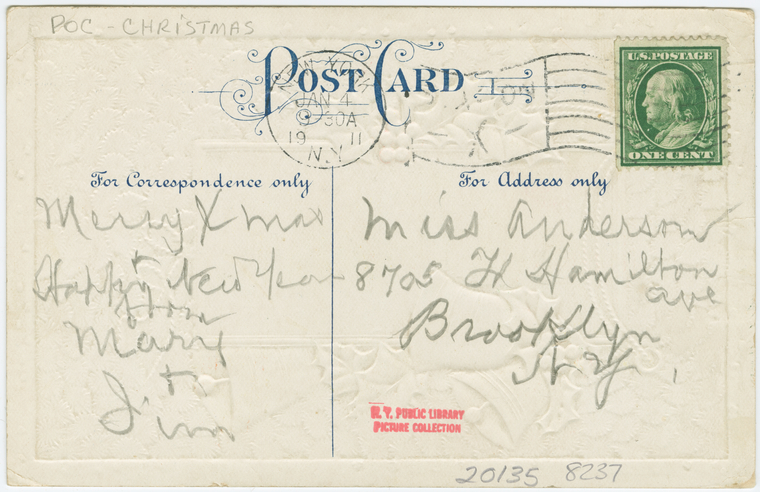 POC - CHRISTMAS
POST CARD
NEW YORK
JAN 4
30A
19 11
N.Y.
U.S. POSTAGE
ONE CENT
For Correspondence only
For Address only
Merry Xmas
+
Happy New Year
from
Mary
+
Jim
Miss Anderson
Hamilton
ave
Brooklyn
N.Y.
N.Y. PUBLIC LIBRARY
PICTURE COLLECTION
20135 8237